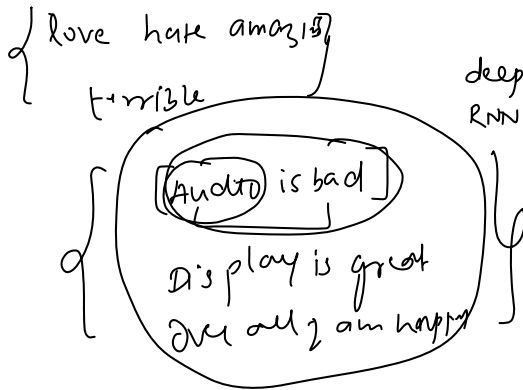 love hate amazing
terrible
deep
RNN
[Audio is bad]
Display is great
Over all I am happy